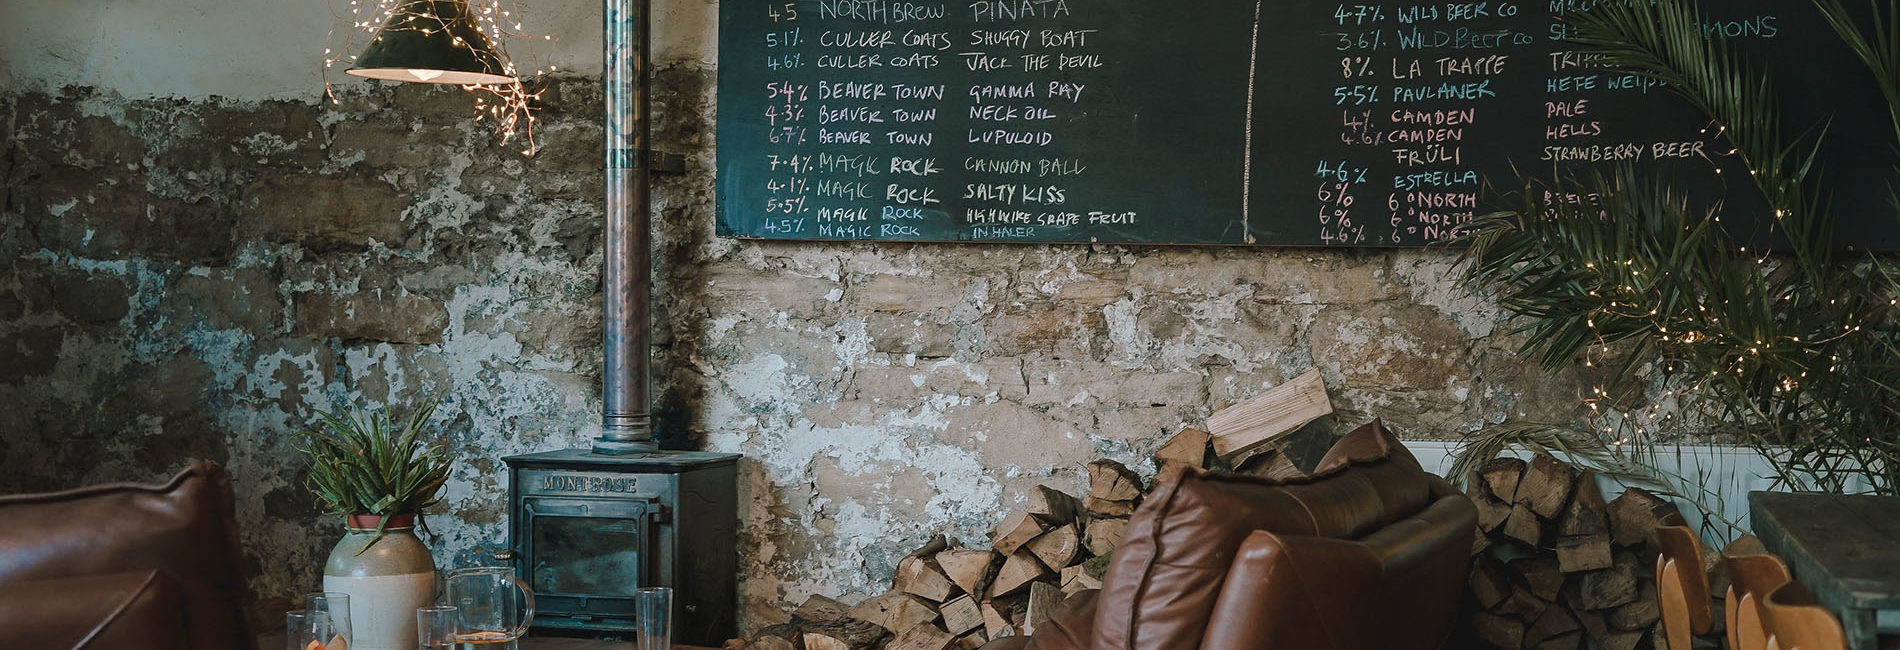 45 NORTH BREW PIÑATA
5.1% CULLER COATS SHUGGY BOAT
4.6% CULLER COATS JACK THE DEVIL
5.4% BEAVER TOWN GAMMA RAY
4.3% BEAVER TOWN NECK OIL
6.7% BEAVER TOWN LUPULOID
7.4% MAGIC ROCK CANNON BALL
4.1% MAGIC ROCK SALTY KISS
5.5% MAGIC ROCK HIGHWIRE GRAPE FRUIT
4.5% MAGIC ROCK INHALER
4.7% WILD BEER CO
3.6% WILD BEER CO
8% LA TRAPPE
5.5% PAULANER HEFE
4% CAMDEN PALE
4.6% CAMDEN HELLS
FRÜLI STRAWBERRY BEER
4.6% ESTRELLA
6% 6° NORTH
6% 6° NORTH
4.6% 6° NORTH
MONTROSE